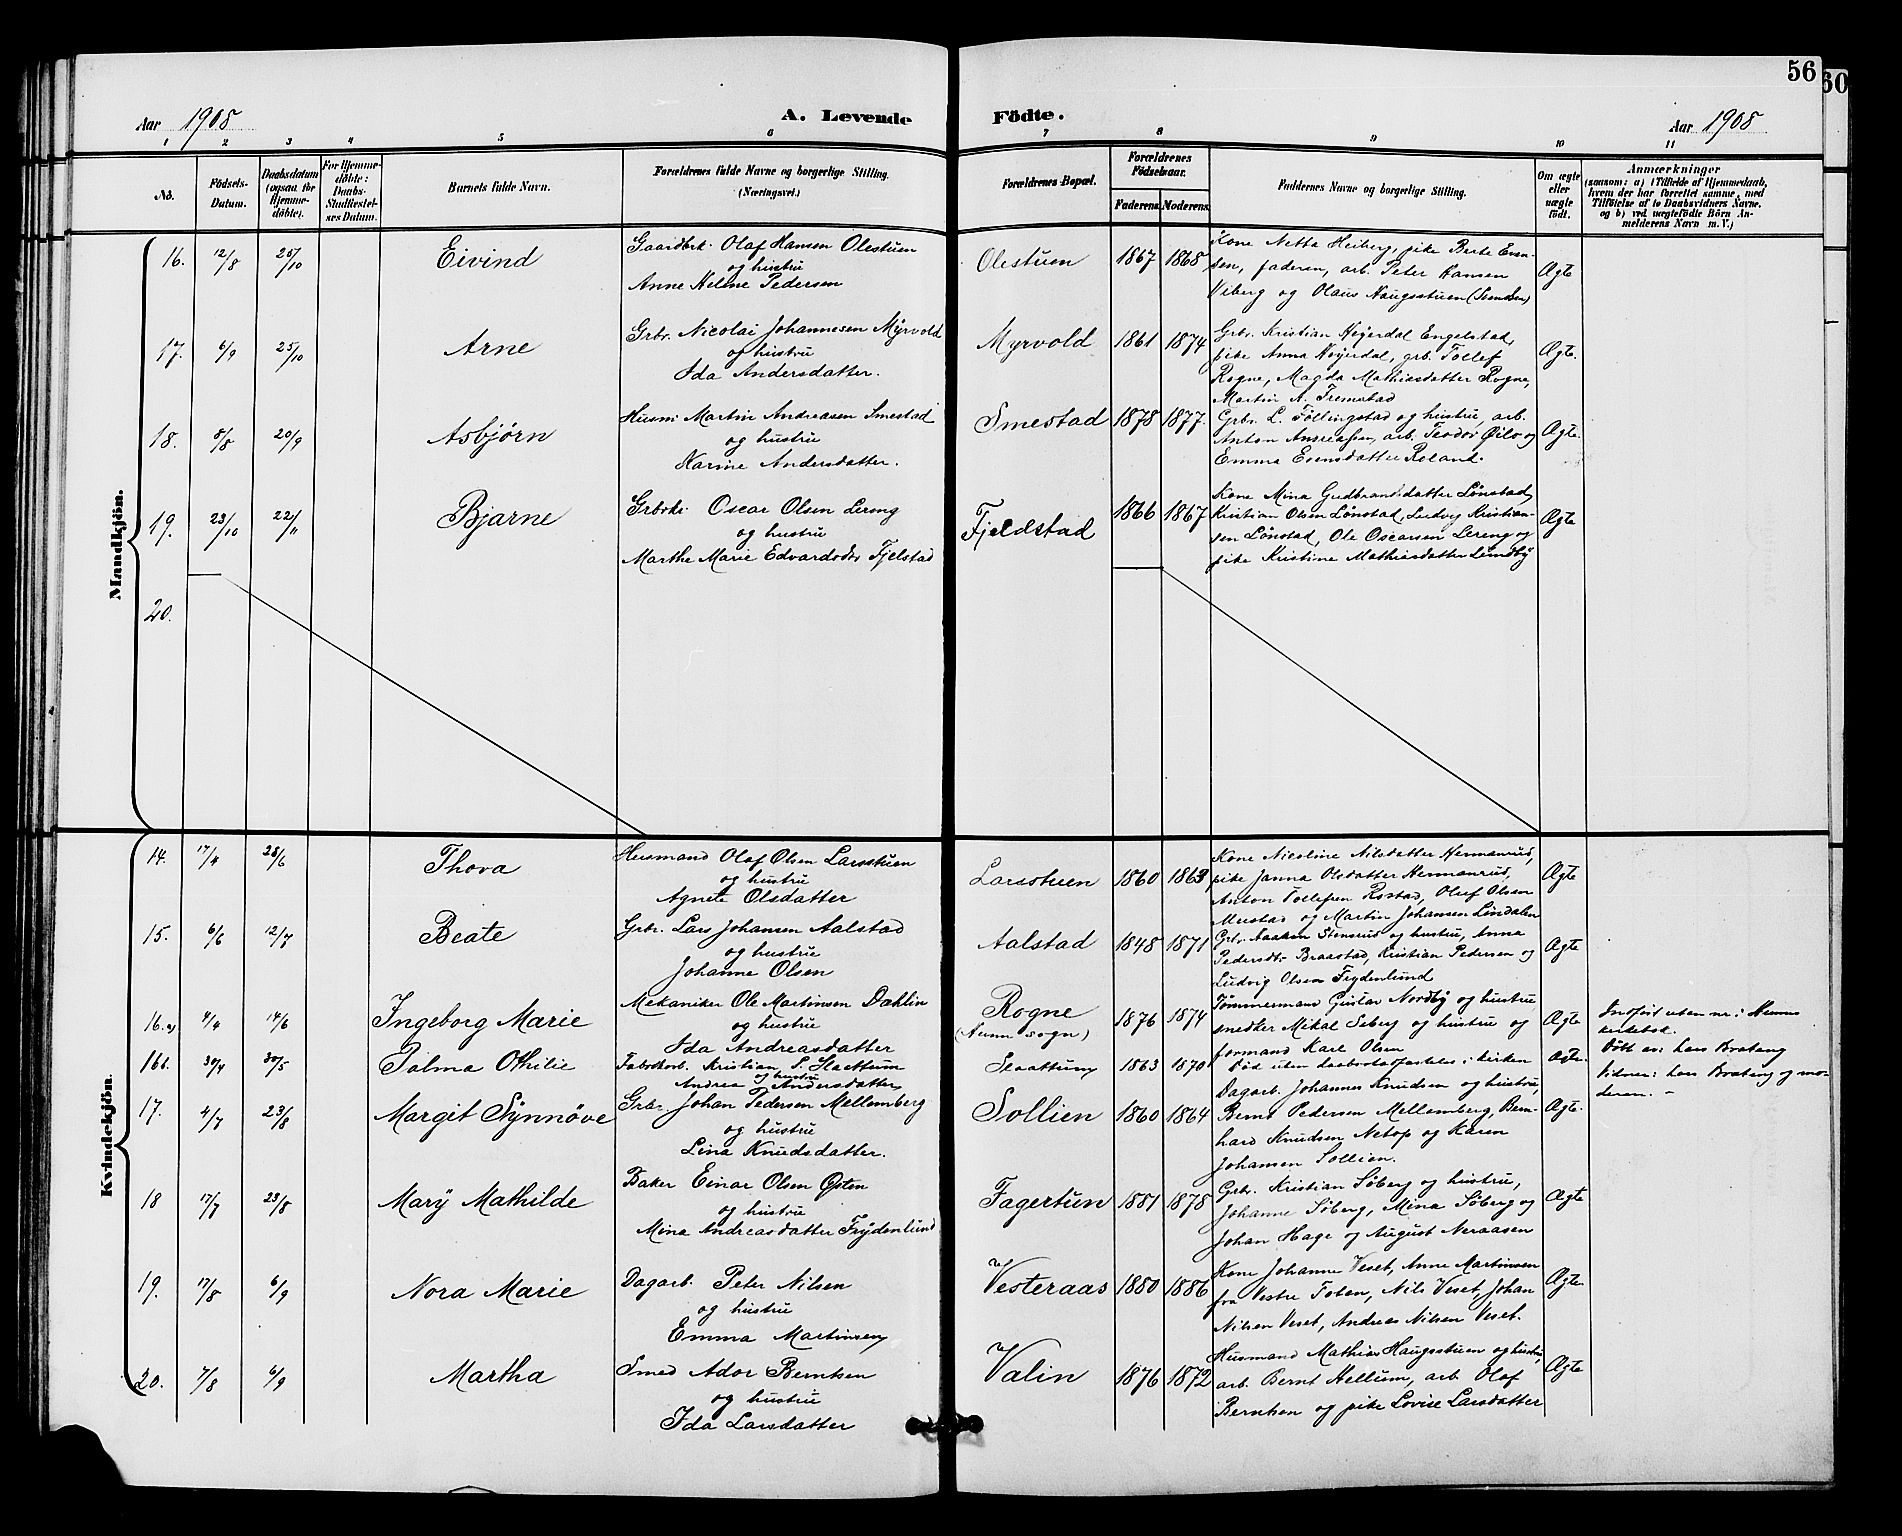 56
60
Aar 1908
A. Levende Födte.
Aar 1908
1 2 3 4 5 6 7 8 9 10 11
No.
Födsels-Datum.
Daabsdatum (ogsaa for Hjemmedöbte).
For Hjemmedöbte: Daabs-Stadfæstelses Datum.
Barnets fulde Navn.
Forældrenes fulde Navne og borgerlige Stilling. (Næringsvei.)
Forældrenes Bopæl.
Forældrenes Födselsaar.
Faderens. Moderens.
Faddernes Navne og borgerlige Stilling.
Om ægte eller uægte födt.
Anmærkninger
(saasom: a) i Tilfælde af Hjemmedaab, hvem der har forrettet samme, med Tilföielse af to Daabsvidners Navne, og b) ved uægtefödte Börn Anmelderens Navn m. V.)
Mandkjön.
16. 12/8 25/10 Eivind
Gaardbr. Olaf Hansen Olestuen
og hustru
Anne Helene Pedersen
Olestuen 1867 1868
Kone Netta Heiberg, pike Berte Even-
sen, faderen, arb. Peter Hansen
Viberg og Olaus Haugsstuen
Ægte
17. 6/9 25/10 Arne
Grbr. Nicolai Johannesen Myrvold
og hustru
Ida Andersdatter.
Myrvold 1861 1874
Grbr. Kristian Heyerdal Engelstad,
pike Anna Heyerdal, grb. Tollef
Rogne, Magda Mathiasdatter Rogne,
Martin A. Fremstad
Ægte.
18. 8/8 20/9 Asbjørn
Husm. Martin Andreasen Smestad
og hustru
Karine Andersdatter.
Smestad 1878 1877.
Grbr. L. Föllingstad og hustru, arb.
Anton Andreassen, arb. Teodor og
Emma Evensdatter
Ægte.
19. 23/10 22/11 Bjarne
Grbrkr. Oscar Olsen Lereng
og hustru
Marthe Marie Edvardsdtr Fjelstad
Fjeldstad 1866 1867
Kone Mina Gudbrandsdatter Lönstad,
Kristian Olsen Lönstad, Ludvig Kristian-
sen Lönstad, Ole Oscarsen Lereng og
pike Kristine Mathiasdatter Lundby
Ægte
20.
Kvindekjön.
14. 17/4 28/6 Thova
Husmand Olaf Olsen Larsstuen
og hustru
Agnete Olsdatter
Larsstuen 1860 1863
Kone Nicoline Nilsdatter Hermanrud,
pike Janna Olsdatter Hermanrud,
Anton Tollefsen Rostad, Oluf Olsen
Mustad og Martin Johansen Lindalen
Ægte
15. 6/6 12/7 Beate
Grbr. Lars Johansen Aalstad
og hustru
Johanne Olsen
Aalstad 1848 1871
Grbr. Haakon Stensrud og hustru, Anna
Pedersdtr Braastad, Kristian Pedersen og
Ludvig Olsen Frydenlund
Ægte
16. a) 4/4 14/6 Ingeborg Marie
Mekaniker Ole Martinsen Dahlin
og hustru
Ida Andreasdatter
Rogne
(Nunn sogn)
1876 1874
Tömmermand Gustav Nordby og hustru
snedker Mikal Seberg og hustru og
formand Karl Olsen
Ægte
Indfört uten nr. i Hunns
kirkebok.
16b. 30/4 30/5 Palma Othilie
Fabrikarb. Kristian S. Slaattum
og hustru
Andrea Andersdatter
Slaattum 1863 1870
Död uten daabsstadfæstelse i kirken
Ægte.
Döbt av: Lars Brateng
Vidner: Lars Brateng og mo-
deren. -
17. 4/7 23/8 Margit Synnöve
Grbr. Johan Pedersen Mellemberg
og hustru
Lina Knudsdatter.
Sollien 1860 1864
Dagarb. Johannes Knudsen og hustru,
Bernt Pedersen Mellemberg, Bern-
hard Knudsen Netop og Karen
Johansen Sollien.
Ægte.
18 17/7 23/8 Mary Mathilde
Baker Einar Olsen Østen
og hustru
Mina Andreasdatter Frydenlund
Fagertun 1881 1878
Grbr. Kristian Söberg og hustru,
Johanne Söberg, Mina Söberg og
Johan Hage og August Neraasen
Ægte
19. 17/8 6/9 Nora Marie
Dagarb. Peter Nilsen
og hustru
Emma Martinsen
Vesteraas 1880 1886
Kone Johanne Veset, Anne Martinsen
fra Vestre Toten, Nils Veset, Johan
Nilsen Veset, Andreas Nilsen Veset.
Ægte
20. 7/8 6/9 Martha
Smed Ador Berntsen
og hustru
Ida Larsdatter
Valin 1876 1872
Husmand Mathias Haugsstuen og hustru,
arb. Bernt Hellum, arb Olaf
Berntsen og pike Lovise Larsdatter
Ægte